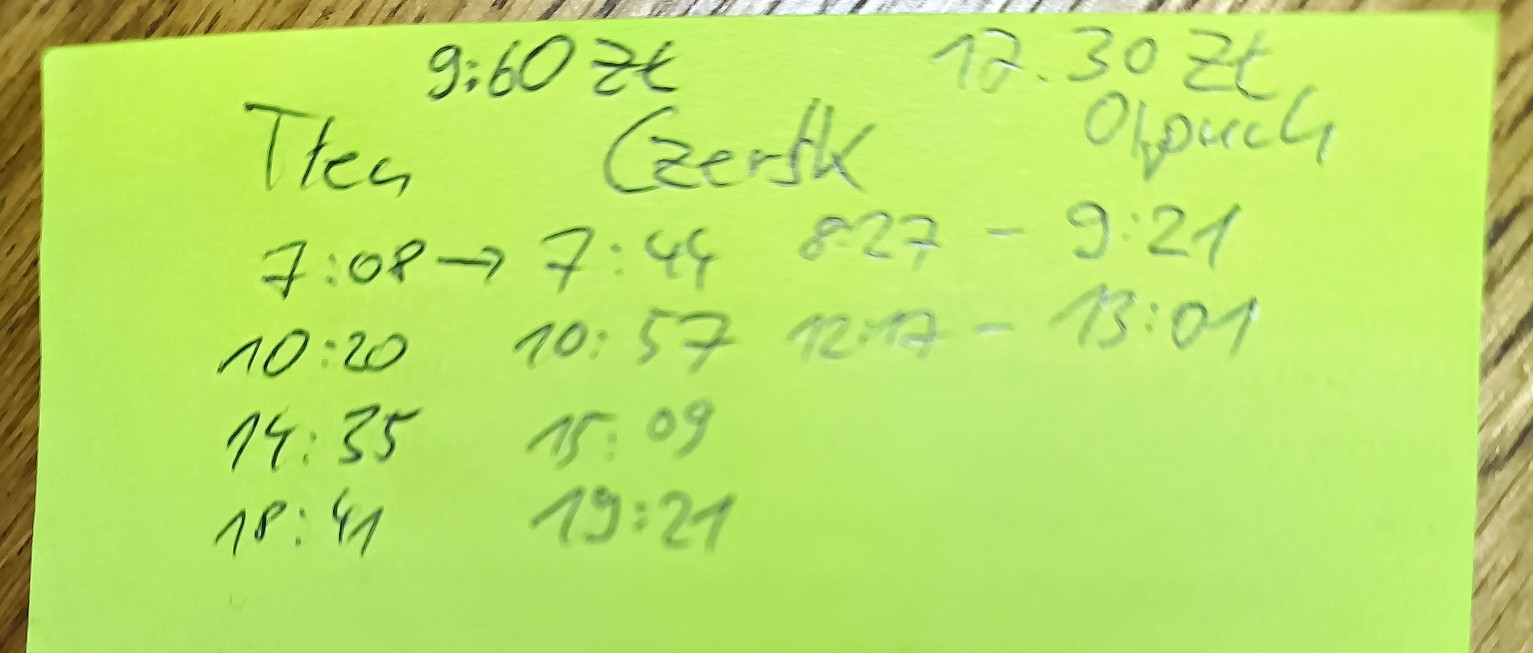 9:60 zł 12.30 zł
Tleń Czersk Olpuch
7:08 → 7:44 8:27 - 9:21
10:20 10:57 12:17 - 13:01
14:35 15:09
18:41 19:21